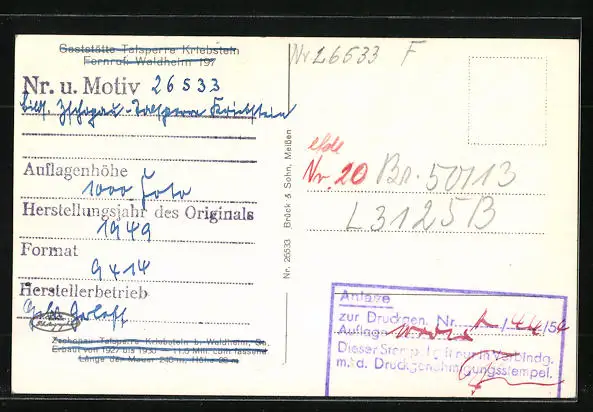 Gaststätte Talsperre Kriebstein
Fernruf: Waldheim 197
Nr. u. Motiv 26533
Zschopau-Talsperre Kriebstein
Auflagenhöhe
1000 Foto
Herstellungsjahr des Originals
1949
Format
9 x 14
Herstellerbetrieb
Zschopau-Talsperre Kriebstein b. Waldheim, Sa.
Erbaut von 1927 bis 1930 — 11,6 Mill. cbm fassend
Länge der Mauer 240 m, Höhe 28 m
Nr. 26533 Brück & Sohn, Meißen
Nr 26533 F
Nr. 20 Br. 50113
L3125B
Anlage
zur Druckgen. Nr.
Auflage
Dieser Stempel gilt nur in Verbindg.
m. d. Druckgenehmigungsstempel.